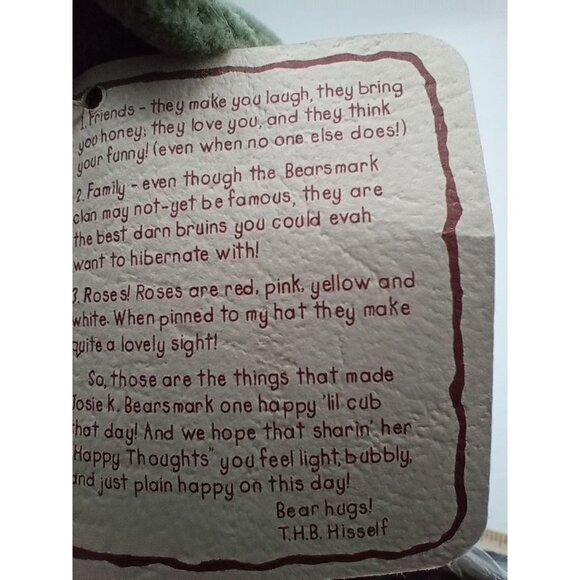 1. Friends - they make you laugh, they bring
you honey; they love you, and they think
your funny! (even when no one else does!)
2. Family - even though the Bearsmark
clan may not-yet be famous, they are
the best darn bruins you could evah
want to hibernate with!
3. Roses! Roses are red, pink, yellow and
white. When pinned to my hat they make
quite a lovely sight!
So, those are the things that made
Josie K. Bearsmark one happy 'lil cub
that day! And we hope that sharin' her
"Happy Thoughts" you feel light, bubbly,
and just plain happy on this day!
Bear hugs!
T.H.B. Hisself